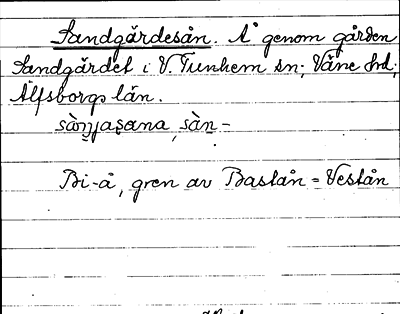 Sandgärdesån. Å genom gården
Sandgärdet i V. Tunhem sn; Väne hd;
Älfsborgs län.
sàn̠jaʂana, sàn̠-
Bi-å, gren av Bastån = Vestån